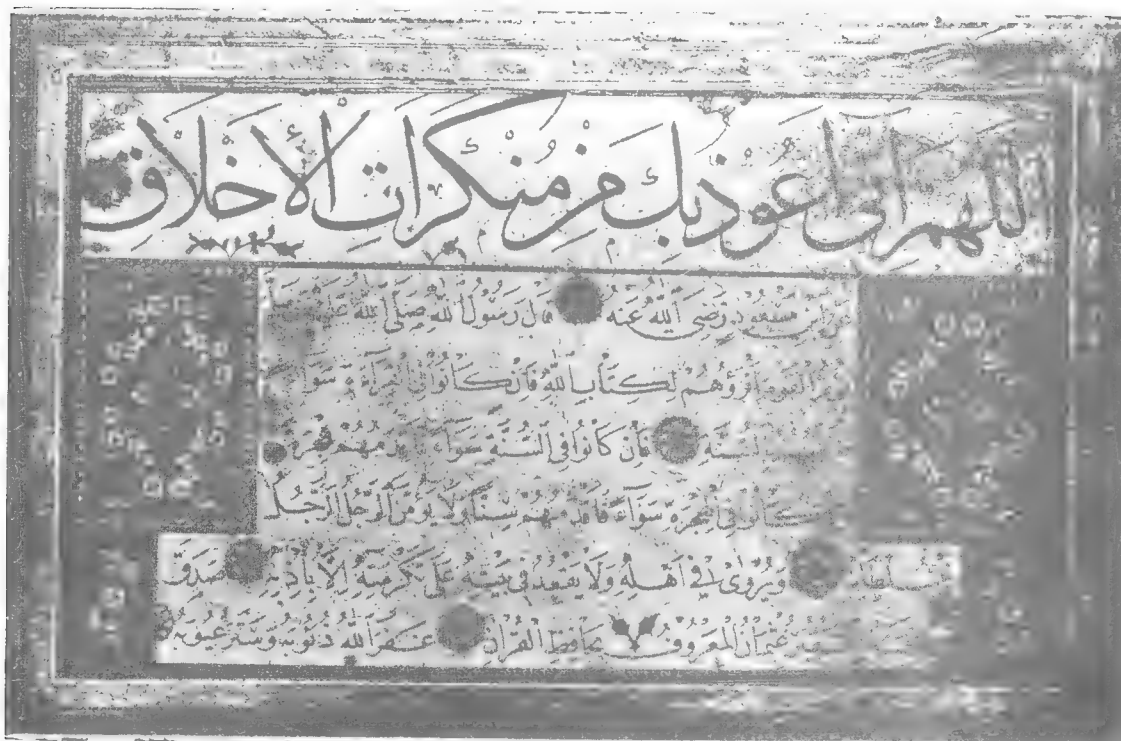 اللهم اني اعوذ بك من منكرات الأخلاق
مسعود رضي الله عنه قال رسول الله صلى الله عليه
القوم اقرؤهم لكتاب الله فان كانوا في القراءة سواء
بالسنة فان كانوا في السنة سواء هجرة
كانوا في الهجرة سواء فاقدمهم سنا ولا يؤمن الرجل الرجل
ويروى في اهله ولا يقعد في بيته على تكرمته الا باذنه صدق
عثمان المعروف بحافظ القران غفر الله ذنوبه وستر عيوبه